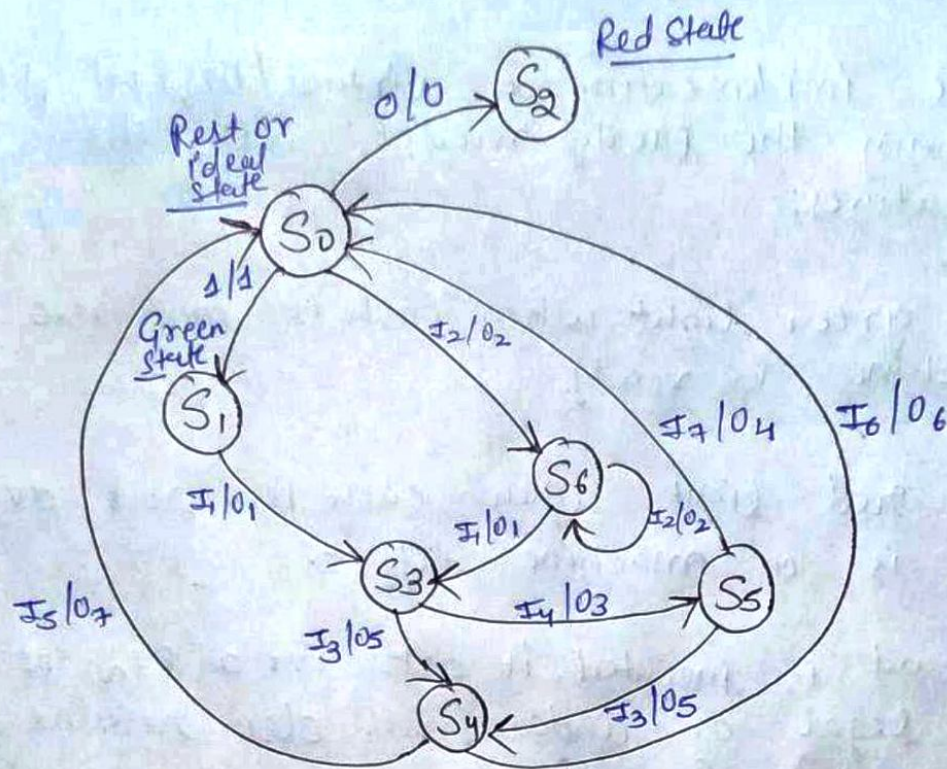 Red State
S2
0/0
Rest or
ideal
state
S0
1/1
Green
state
I2/O2
S1
I7/O4
I6/O6
S6
I1/O1
I1/O1
I2/O2
S3
S5
I4/O3
I5/O7
I3/O5
S4
I3/O5